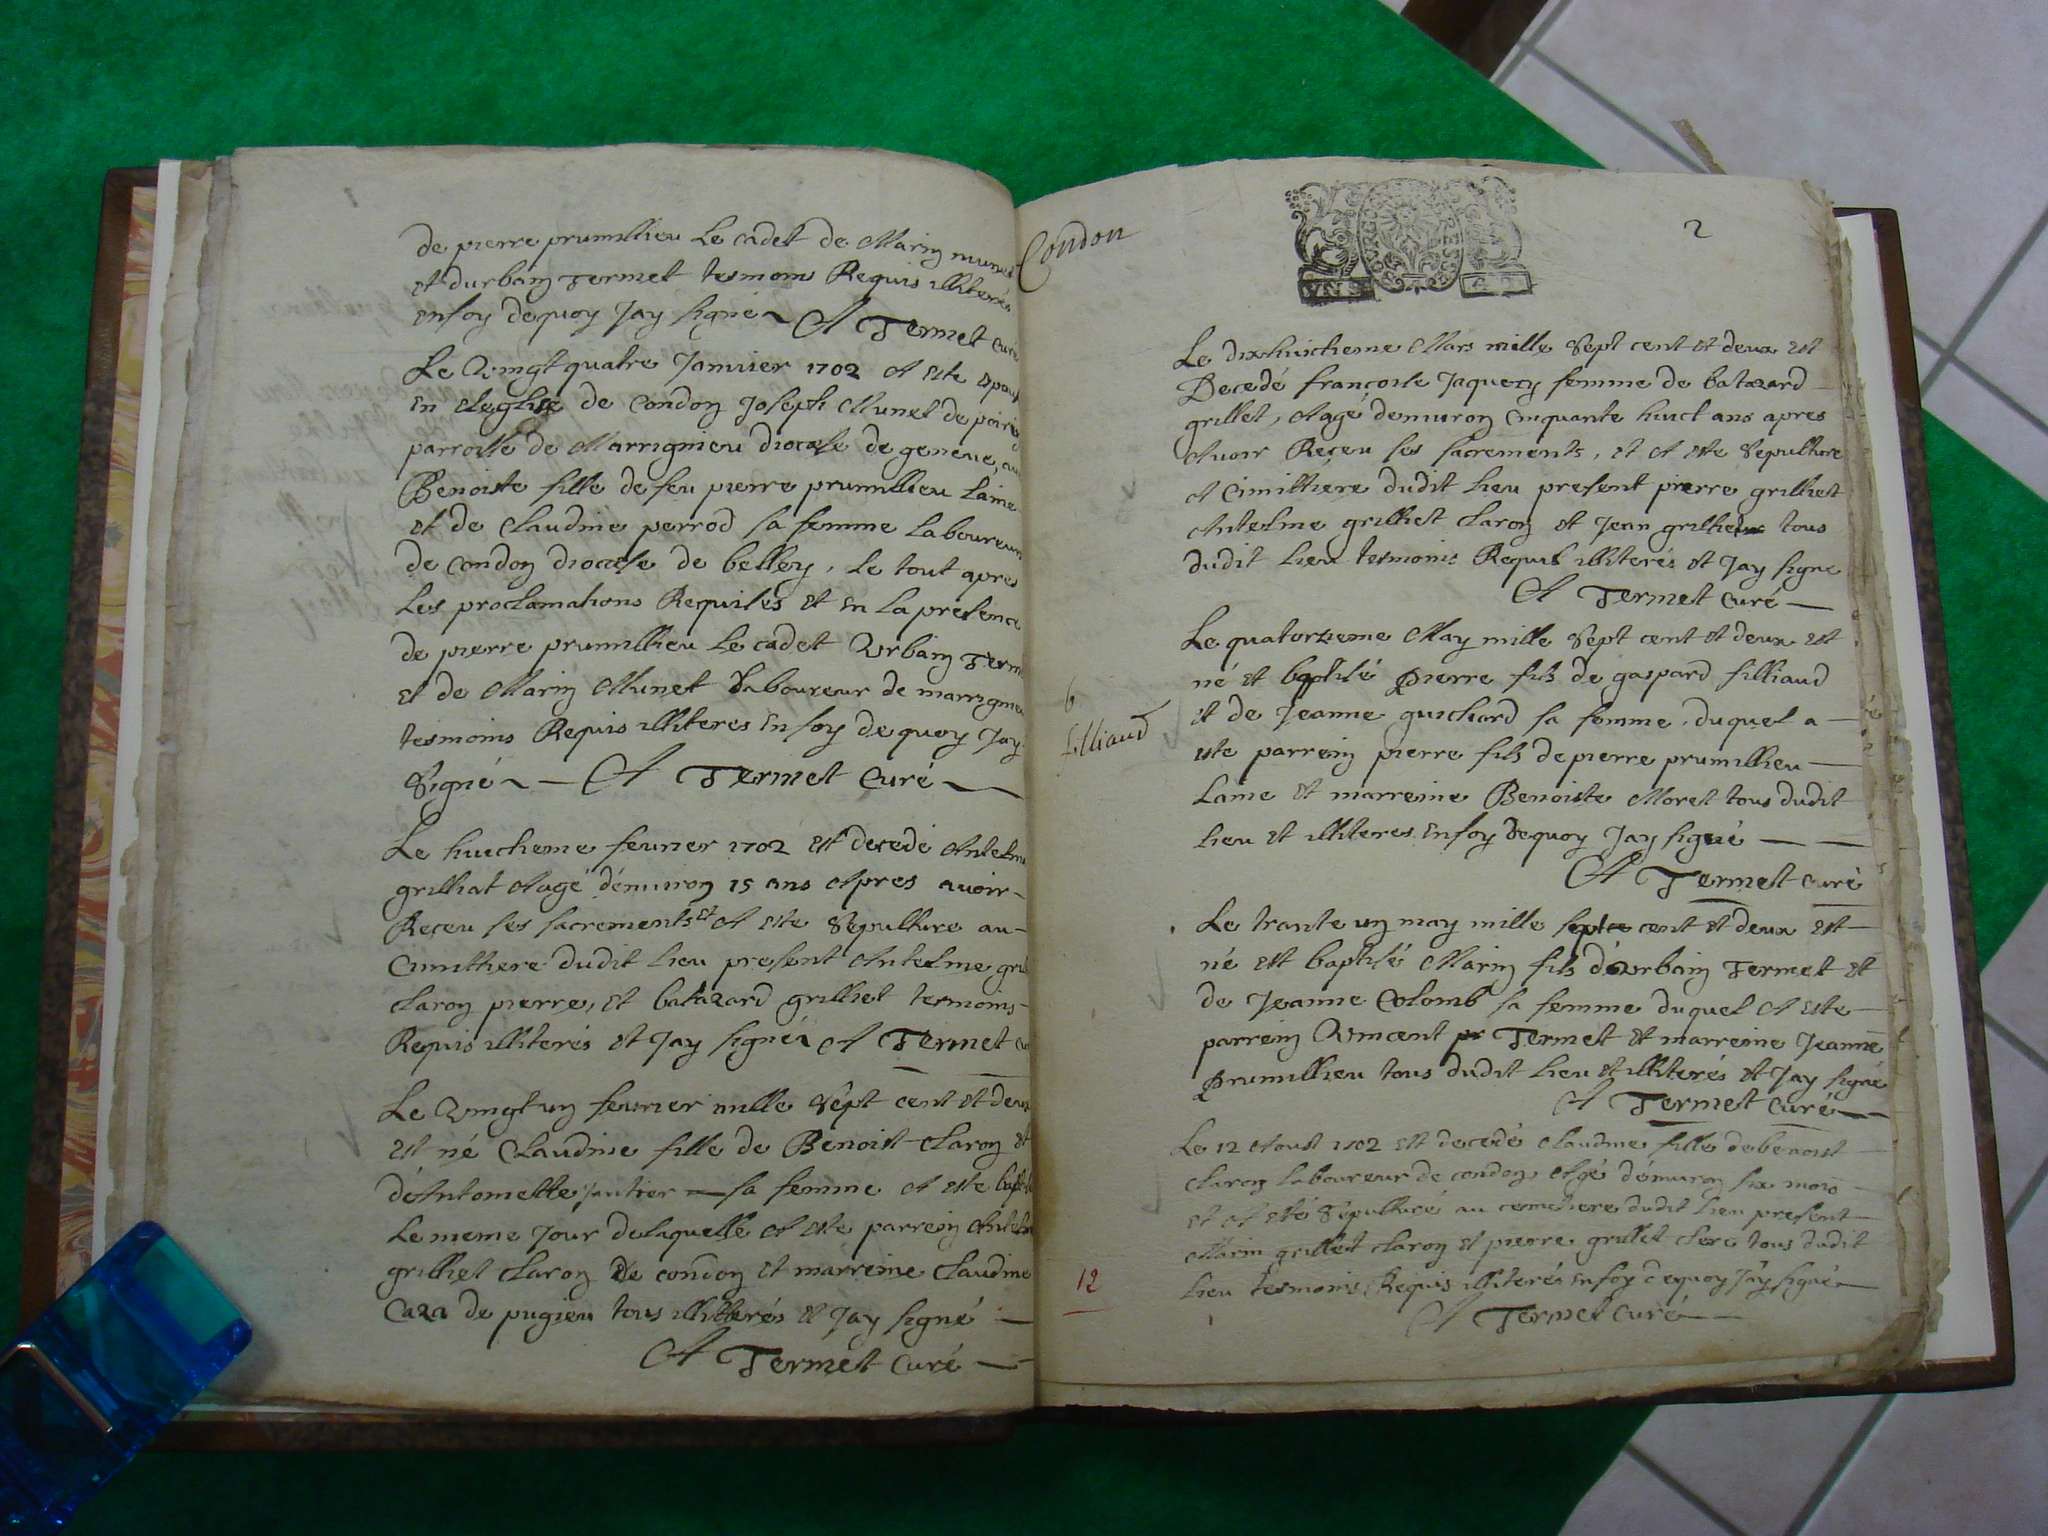 de pierre prumillieu Le cadet de Marin munet
et durbain Termet tesmoins Requis illiterés
enfoy dequoy Jay signé A Termet curé
Le Vingt quatre Janvier 1702 A esté
En Leglise de Condon Joseph Munet de
parroisse de Marrignieu diocese de geneve,
Benoiste fille de feu pierre prumillieu Laine
et de Claudine perrod sa femme Laboureur
de Condon diocese de belley, Le tout apres
Les proclamations Requises et En La presence
de pierre prumillieu Le cadet Vrbain Term
et de Marin Munet Laboureur de marrignieu
tesmoins Requis illiteres Enfoy de quoy Jay
Signé A Termet Curé
Le huictieme fevrier 1702 est decedé Antelme
grilliat Aagé d'environ 15 ans Apres avoir
Receu ses sacrements et A Este Sepulture au
Cimittiere dudit Lieu present Antelme gril
Claron pierre, et batazard grilliet tesmoins
Requis illiterés et Jay signé A Termet
Le Vingt un fevrier mille Sept cent et deux
est né Claudine fille de Benoist Claron et
d'Antoinette Jantier sa femme A este
Le meme Jour de laquelle A Este parrein
grilliet Claron De condon et marreine Claudine
Caza de pugieu tous illiterés et Jay signé
A Termet Curé
Condon
2
Le dixhuictieme Mars mille Sept cent et deux est
Decedé francoise Jaquety femme de batazard
grillet, Aagé denviron cinquante huict ans apres
Avoir Receu ses sacrements, et A este Sepulture
A Cimittiere dudit Lieu present pierre grilliet
Antelme grilliet Claron et Jean grilliet tous
dudit Lieu tesmoins Requis illiterés et Jay signé
A Termet Curé
Le quatorzieme May mille Sept cent et deux est
né et baptisé Pierre fils de gaspard filliaud
et de Jeanne guichard sa femme, duquel a
este parrein pierre fils de pierre prumillieu
Laine et marreine Benoiste Moret tous dudit
Lieu et illiteres Enfoy Dequoy Jay signé
A Termet Curé
6
filliaud
Le trante un may mille septe cent et deux est
né est baptisé Marin fils d'Vrbain Termet et
de Jeanne Colomb sa femme duquel A Este
parrein Vincent Termet et marreine Jeanne
Prumillieu tous dudit Lieu et illiterés et Jay signé
A Termet Curé
Le 12 Aoust 1702 est decedé Claudine fille de benoist
Claron Laboureur de condon Agé d'environ six mois
et A Esté Sepulturé au cemetiere dudit Lieu present
Marin grilliet Claron et pierre grillet Clerc tous dudit
Lieu tesmoins Requis illiterés Enfoy dequoy Jay signé
A Termet Curé
12